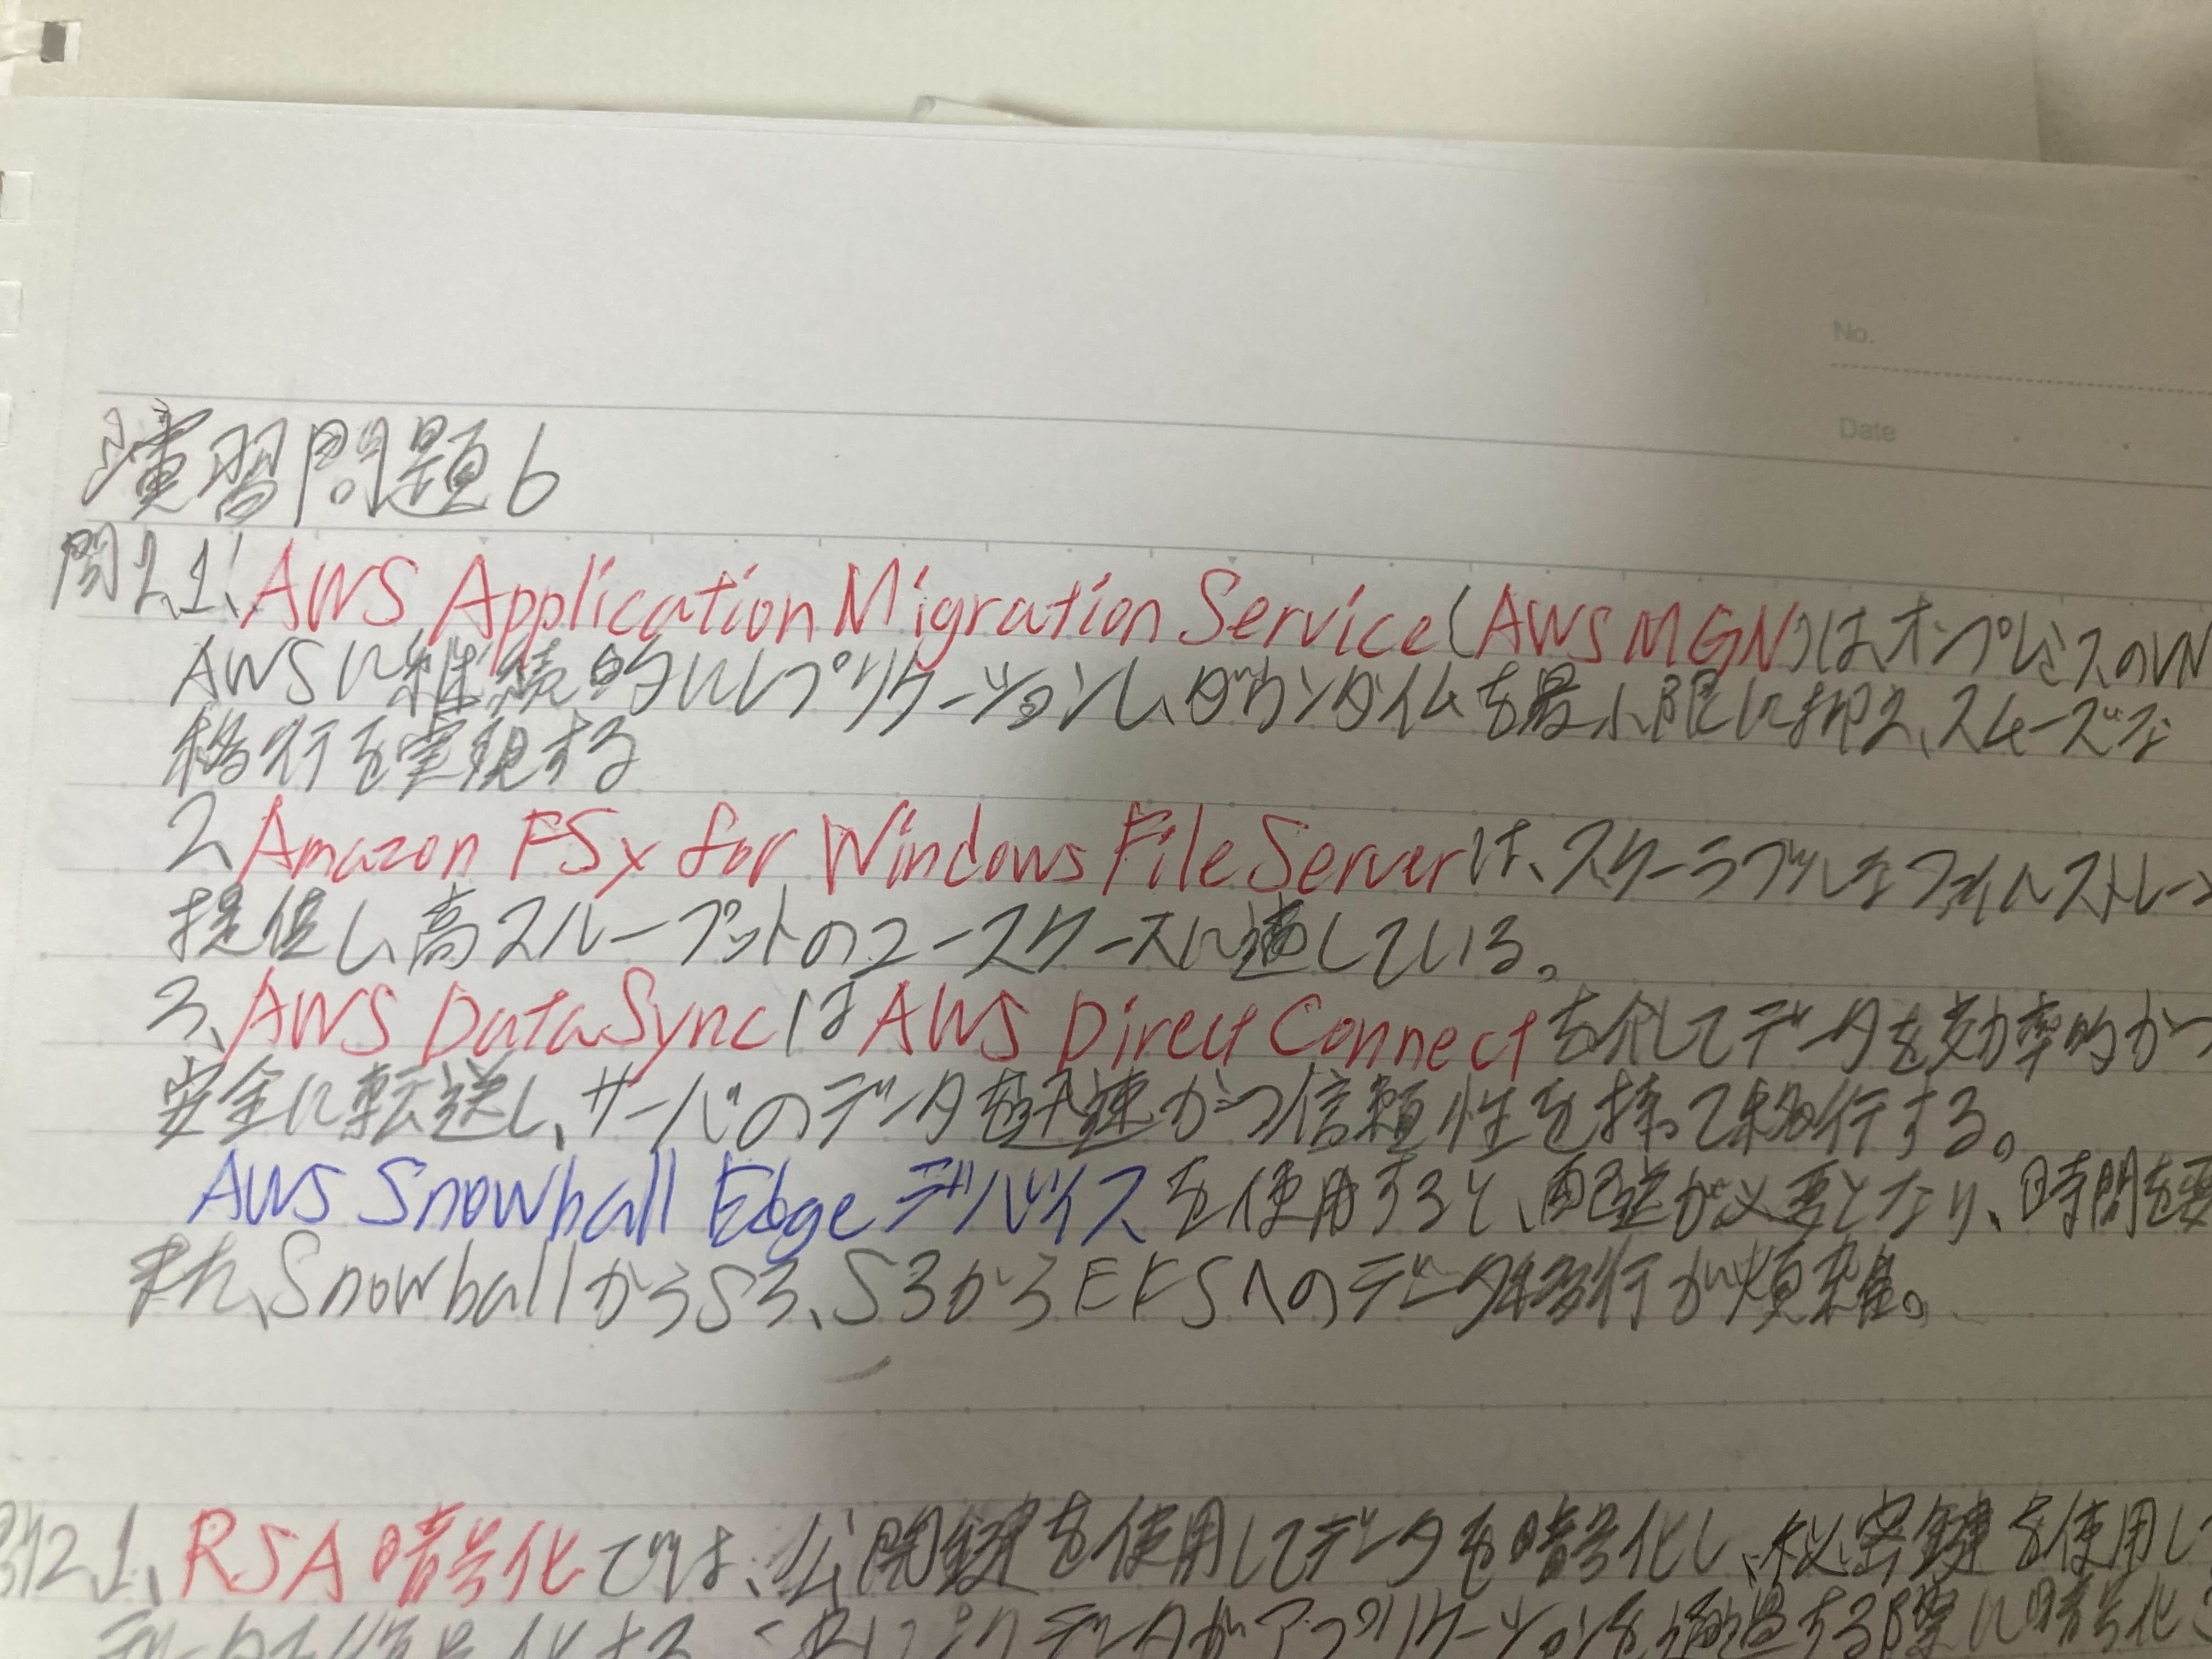 No.
Date
演習問題6
問2,1、AWS Application Migration Service(AWS MGN)は、オンプレミスのVM
AWSに継続的にレプリケーションし、ダウンタイムを最小限に抑え、スムーズな
移行を実現する
2、Amazon FSx for Windows File Serverは、スケーラブルなファイルストレージ
提供し、高スループットのユースケースに適している。
3、AWS DataSyncはAWS Direct Connectを介してデータを効率的かつ
安全に転送し、サーバのデータを迅速かつ信頼性を持って移行する。
AWS Snowball Edgeデバイスを使用すると、配送が必要となり、時間を要
また、SnowballからS3、S3からEFSへのデータ移行が煩雑。
問2 1、RSA暗号化では、公開鍵を使用してデータを暗号化し、秘密鍵を使用して
データがアプリケーションを通過する際に暗号化